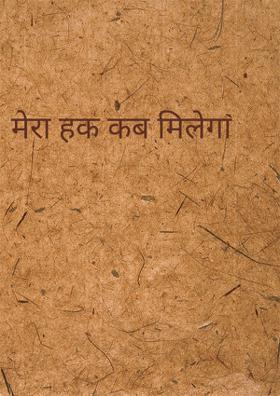 मेरा हक कब मिलेगा